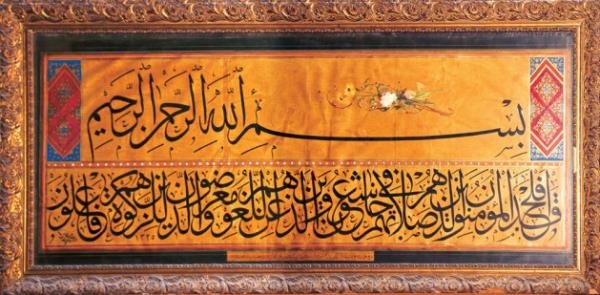 بسم الله الرحمن الرحيم
قد أفلح المؤمنون الذين هم في صلاتهم خاشعون والذين هم عن اللغو معرضون والذين هم للزكوة فاعلون